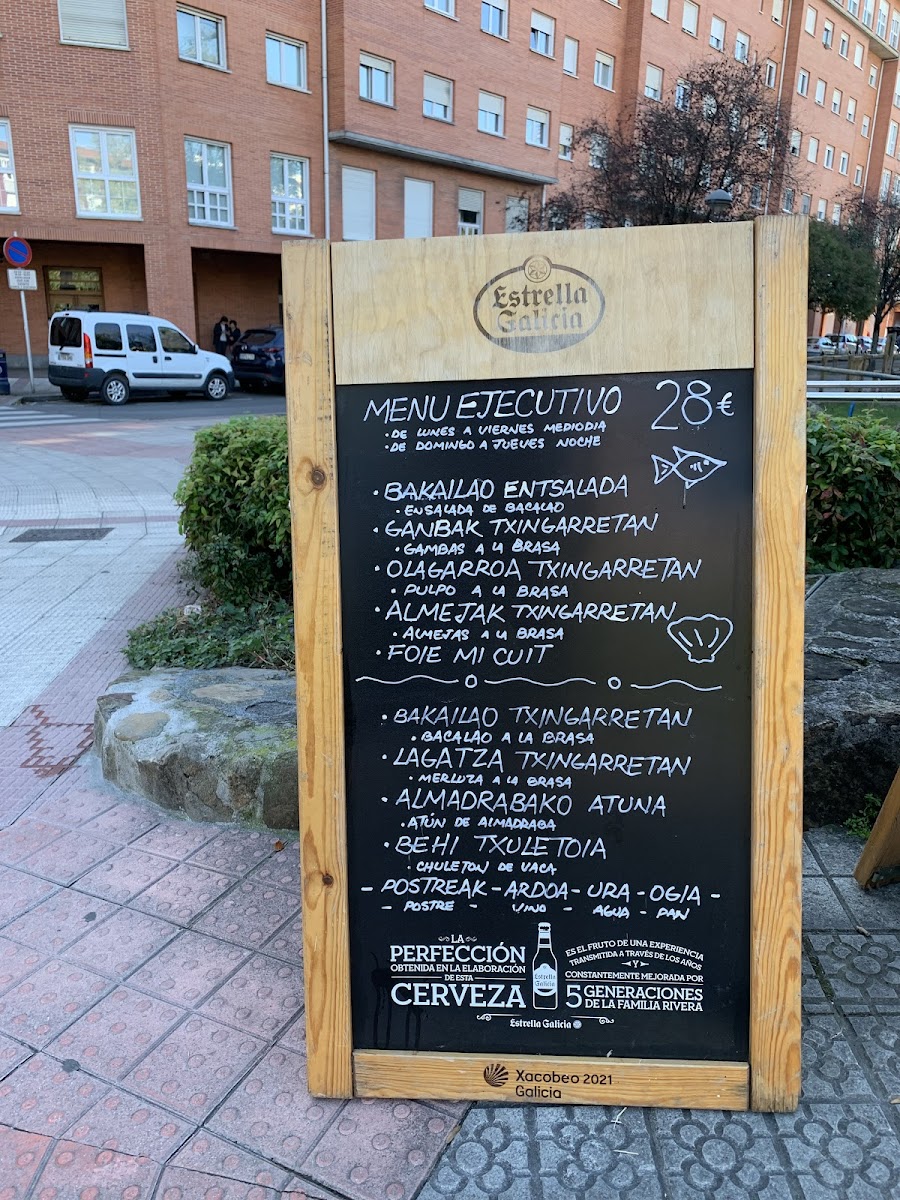 Estrella
Galicia
MENU EJECUTIVO 28€
• DE LUNES A VIERNES MEDIODIA
• DE DOMINGO A JUEVES NOCHE
• BAKAILAO ENTSALADA
• ENSALADA DE BACALAO
• GANBAK TXINGARRETAN
• GAMBAS A LA BRASA
• OLAGARROA TXINGARRETAN
• PULPO A LA BRASA
• ALMEJAK TXINGARRETAN
• ALMEJAS A LA BRASA
• FOIE MI CUIT
• BAKAILAO TXINGARRETAN
• BACALAO A LA BRASA
• LAGATZA TXINGARRETAN
• MERLUZA A LA BRASA
• ALMADRABAKO ATUNA
• ATÚN DE ALMADRABA
• BEHI TXULETOIA
• CHULETON DE VACA
- POSTREAK - ARDOA - URA - OGIA -
- POSTRE - VINO - AGUA - PAN
LA
PERFECCIÓN
OBTENIDA EN LA ELABORACIÓN
DE ESTA
CERVEZA
Estrella
Galicia
ES EL FRUTO DE UNA EXPERIENCIA
TRANSMITIDA A TRAVÉS DE LOS AÑOS
Y
CONSTANTEMENTE MEJORADA POR
5 GENERACIONES
DE LA FAMILIA RIVERA
Estrella Galicia
Xacobeo 2021
Galicia